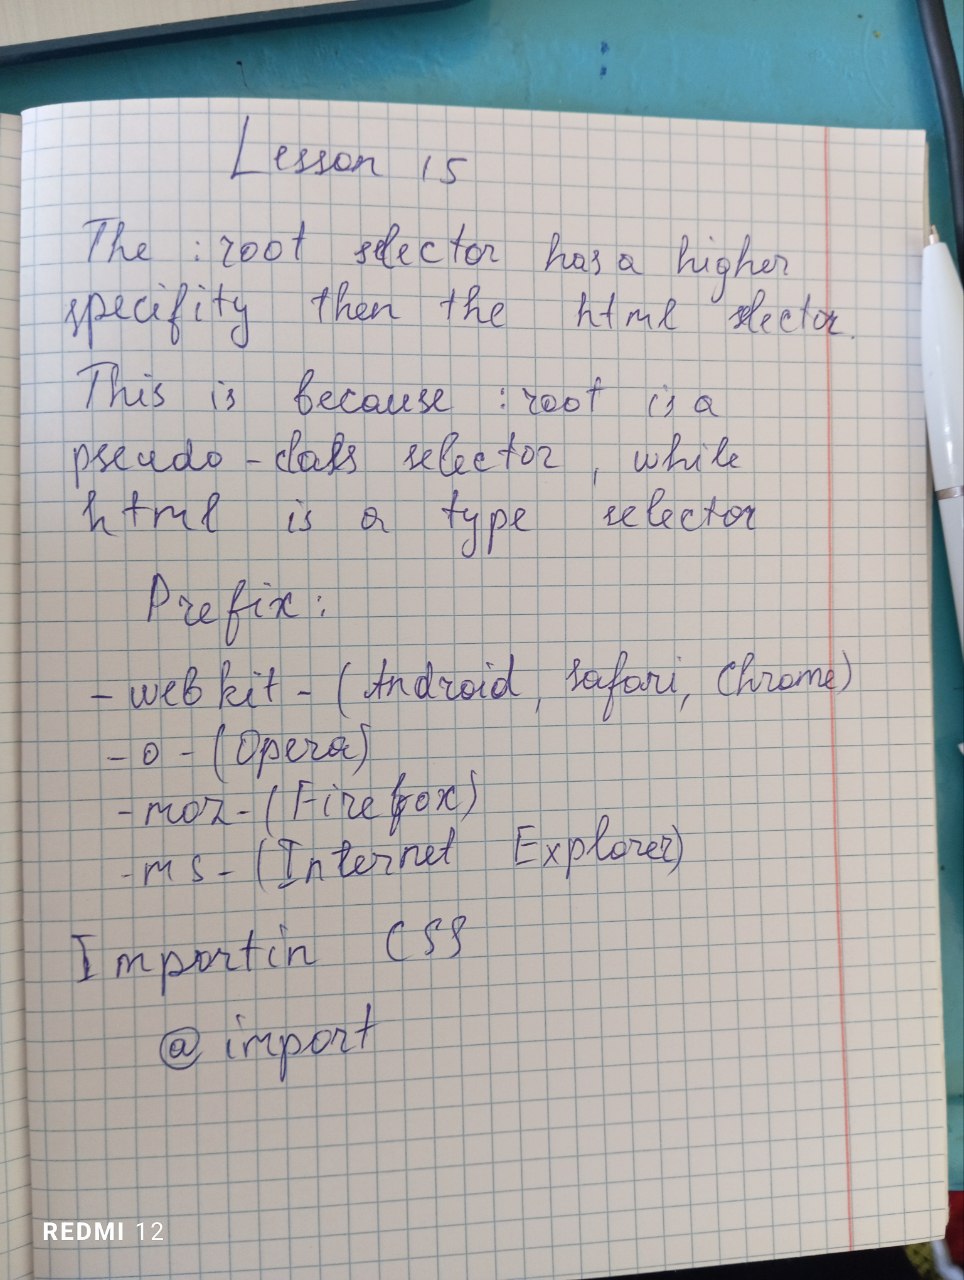 Lesson 15
The :root selector has a higher
specifity then the html selector.
This is because :root is a
pseudo-class selector, while
html is a type selector
Prefix:
-webkit- (Android, safari, Chrome)
-o- (Opera)
-moz- (Firefox)
-ms- (Internet Explorer)
Importin CSS
@import
REDMI 12